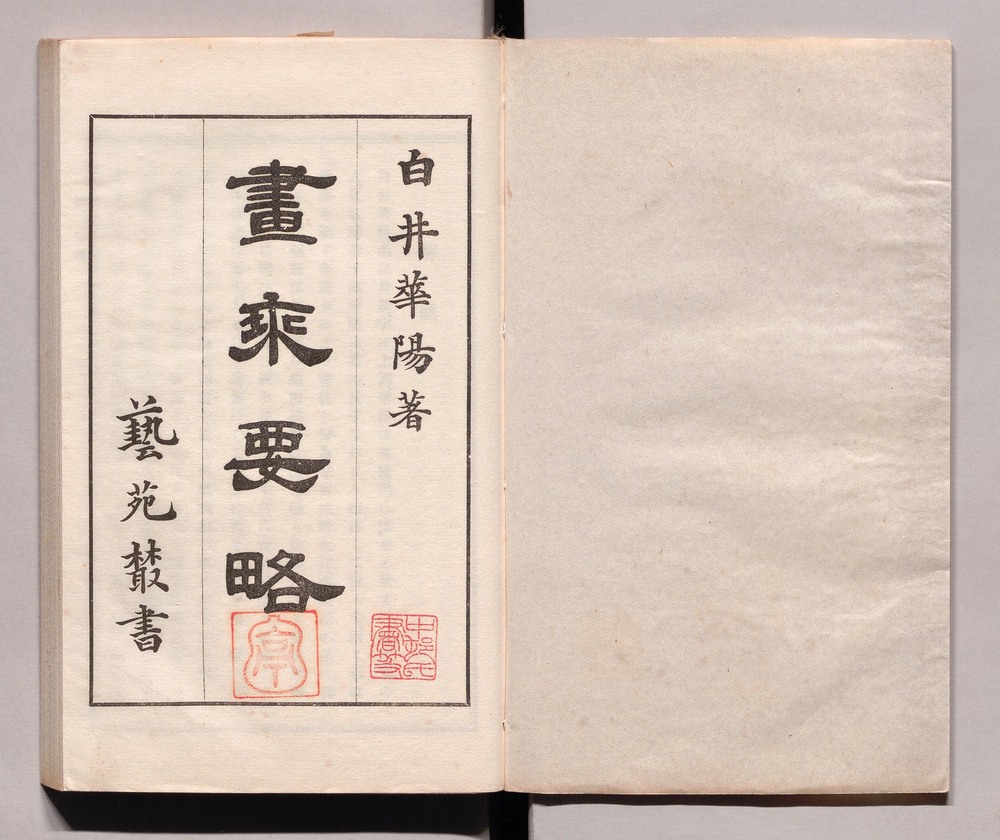 白井華陽著
畫乘要略
藝苑叢書